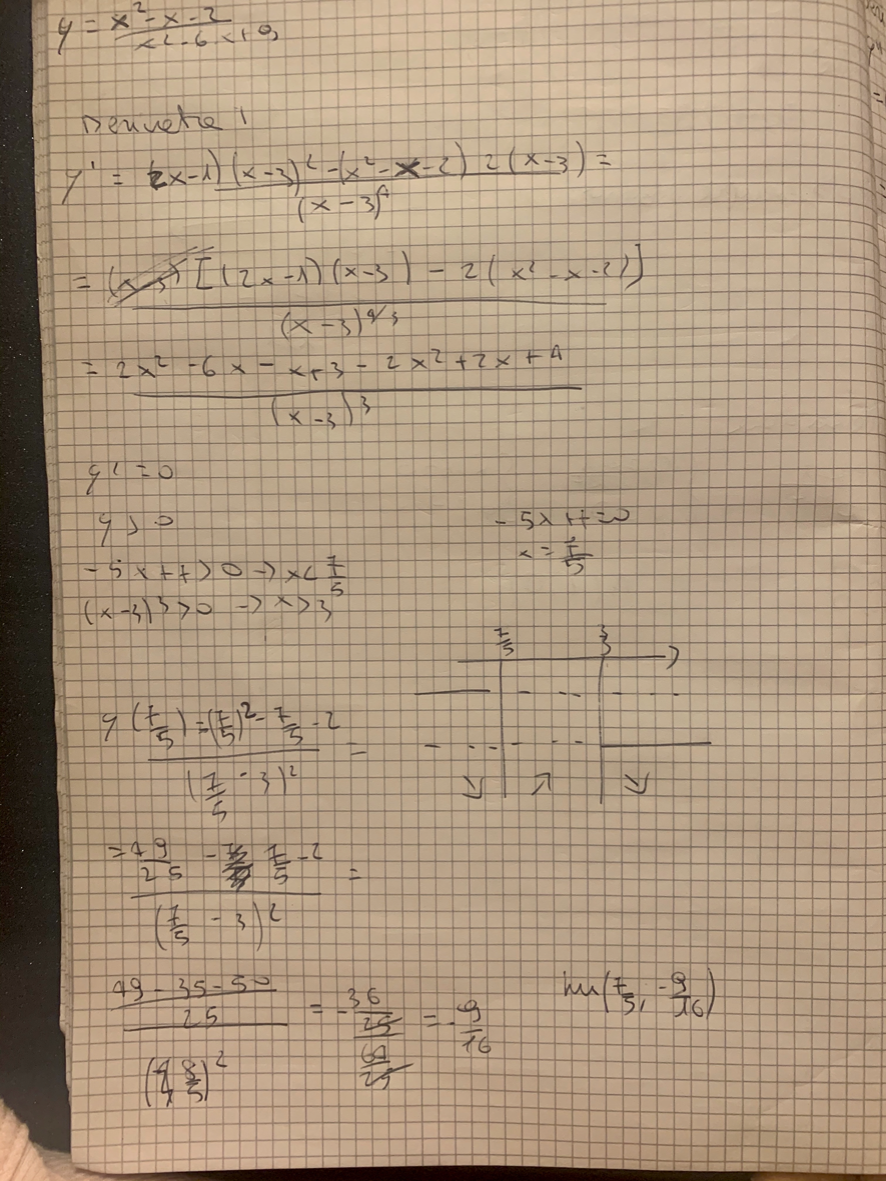 y = (x² - x - 2)/(x² - 6x + 9)
Derivata 1
y' = (2x-1)(x-3)² - (x² - x - 2) 2(x-3) / (x-3)⁴ =
= (x-3) [(2x-1)(x-3) - 2(x² - x - 2)] / (x-3)^4/3
= 2x² - 6x - x + 3 - 2x² + 2x + 4 / (x-3)³
y' = 0
y > 0
- 5x + 7 = 0
x = 7/5
- 5x + 7 > 0 -> x < 7/5
(x-3)³ > 0 -> x > 3
7/5 3
y (7/5) = (7/5)² - 7/5 - 2 / (7/5 - 3)² =
↘ ↗ ↘
= 49/25 - 7/5 - 2 / (7/5 - 3)² =
(49 - 35 - 50)/25 / (8/5)² = - 36/25 / 64/25 = - 9/16
m (7/5; - 9/16)